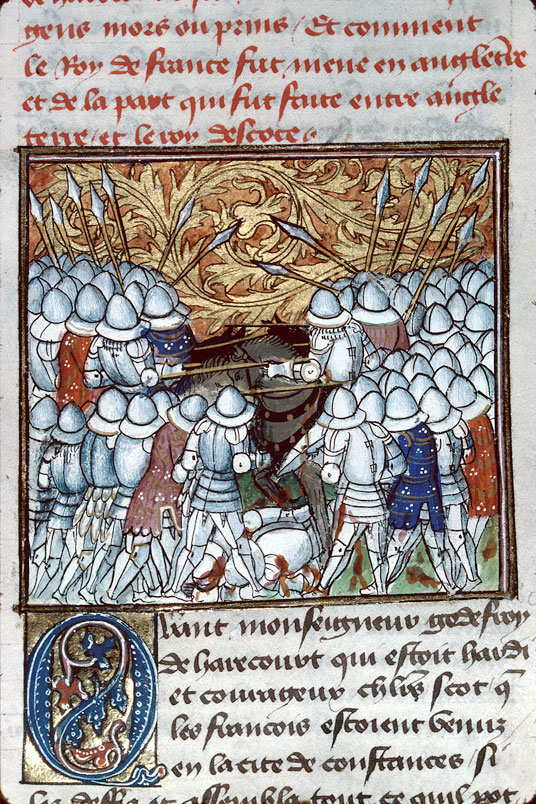 de harecourt
gens mors ou prins / Et comment
le Roy de france fut mene en angletre
et de la paix qui fut faite entre angle
terre / et le roy descoce .
Quant monseigneur godefroy
de harecourt qui estoit hardi
et courageux chlrs scot q
les francois estoient venuz
en la cite de constances si
et assembla tout ce quil pot